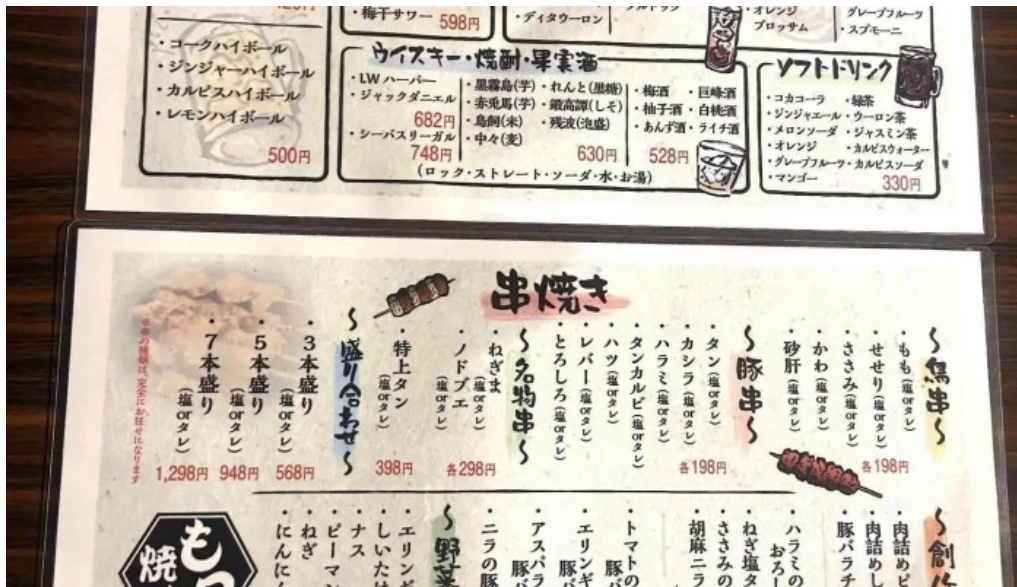 ・梅干サワー 598円
・ディタウーロン
・オレンジ
ブロッサム
グレープフルーツ
・スプモーニ
・コークハイボール
・ジンジャーハイボール
・カルピスハイボール
・レモンハイボール
500円
ウイスキー・焼酎・果実酒
・LWハーパー
・ジャックダニエル
682円
・シーバスリーガル
748円
・黒霧島(芋)
・赤兎馬(芋)
・鳥飼(米)
・中々(麦)
・れんと(黒糖)
・鍛高譚(しそ)
・残波(泡盛)
630円
・梅酒
・柚子酒
・あんず酒
・巨峰酒
・白桃酒
・ライチ酒
528円
(ロック・ストレート・ソーダ・水・お湯)
ソフトドリンク
・コカコーラ
・ジンジャエール
・メロンソーダ
・オレンジ
・グレープフルーツ
・マンゴー
・緑茶
・ウーロン茶
・ジャスミン茶
・カルピスウォーター
・カルピスソーダ
330円
串焼き
〜鳥串〜
・もも(塩orタレ)
・せせり(塩orタレ)
・ささみ(塩orタレ)
・かわ(塩orタレ)
・砂肝(塩orタレ)
各198円
〜豚串〜
・タン(塩orタレ)
・カシラ(塩orタレ)
・ハラミ(塩orタレ)
・タンカルビ(塩orタレ)
・ハツ(塩orタレ)
・レバー(塩orタレ)
・とろしろ(塩orタレ)
各198円
〜名物串〜
・ねぎま
(塩orタレ)
・ノドブエ
(塩orタレ)
各298円
・特上タン
(塩orタレ)
398円
〜盛り合わせ〜
・3本盛り
(塩orタレ)
568円
・5本盛り
(塩orタレ)
948円
・7本盛り
(塩orタレ)
1,298円
※串の種類は、完全にお任せになります
〜創
・肉詰め
・肉詰めし
・豚バラチ
・ハラミの
おろし
・ねぎ塩タ
・ささみの
・胡麻ニラ
・トマトの
豚バ
・エリンギ
豚バ
・アスパラ
豚バラ
・ニラの豚
〜野菜
・エリンギ
・しいたけ
・ナス
・ピーマン
・ねぎ
・にんにく
もつ
焼